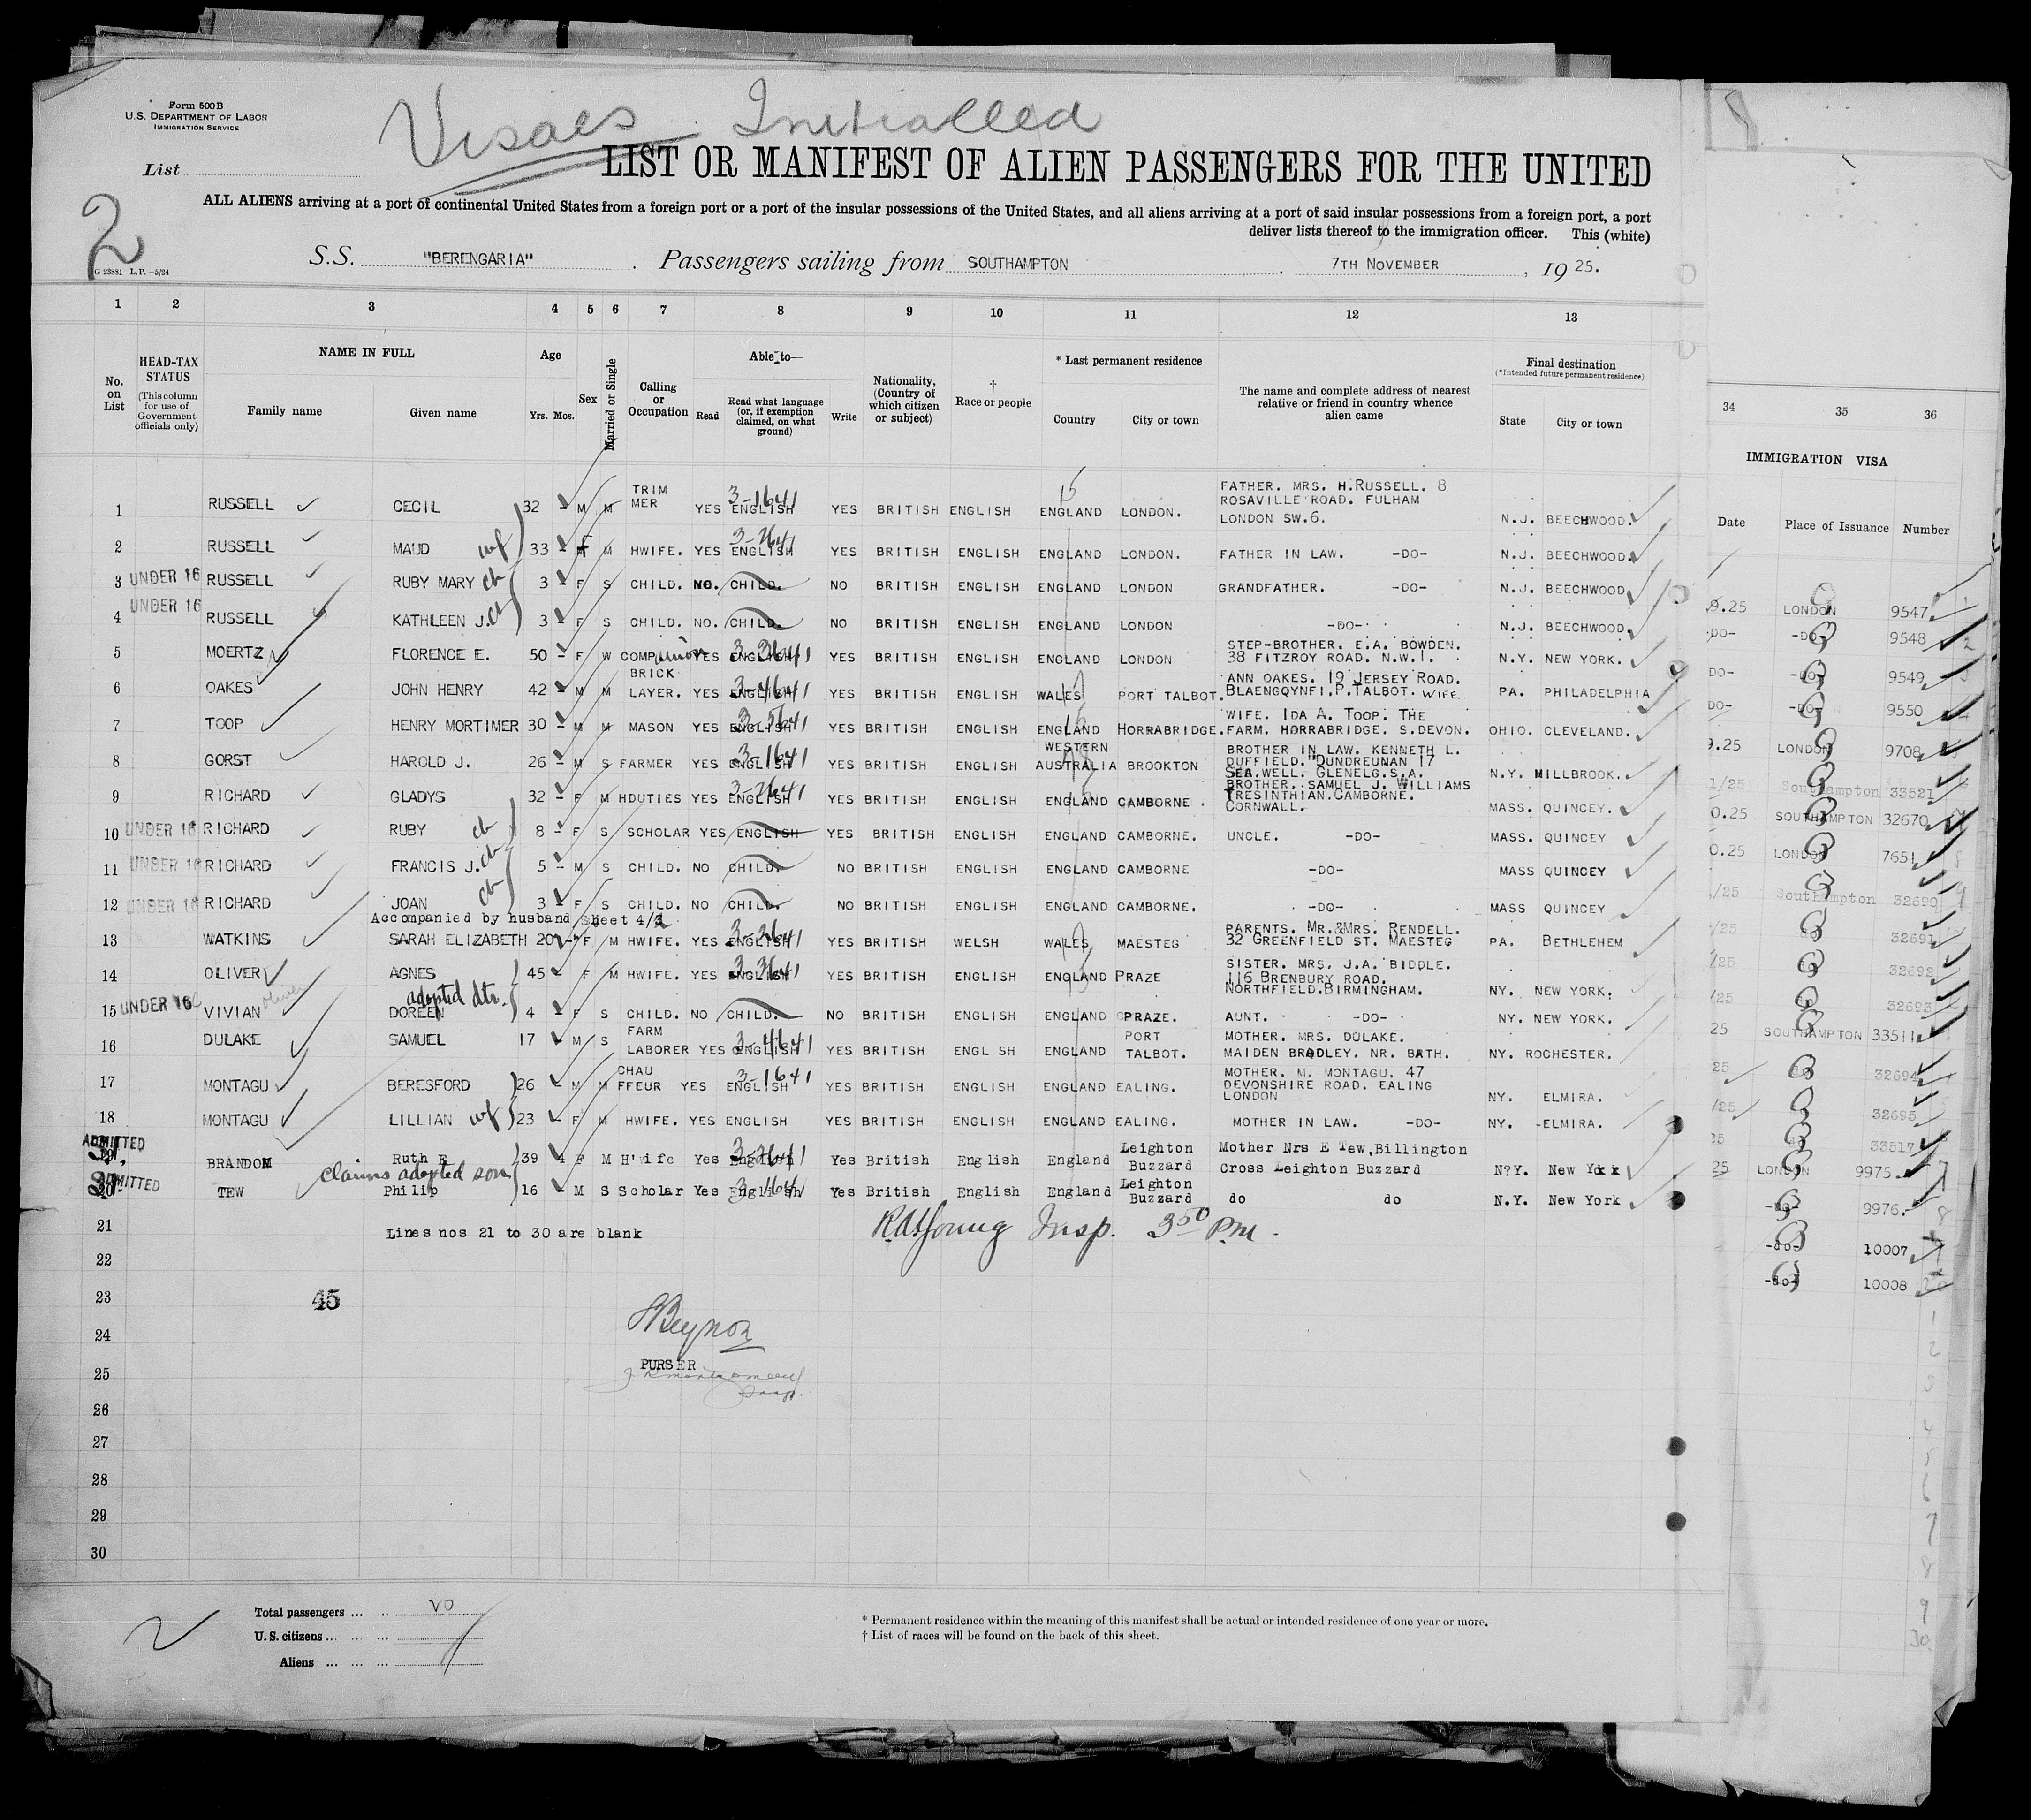 Form 500 B
U.S. DEPARTMENT OF LABOR
IMMIGRATION SERVICE
Visaes Initialled
List
2
LIST OR MANIFEST OF ALIEN PASSENGERS FOR THE UNITED
ALL ALIENS arriving at a port of continental United States from a foreign port or a port of the insular possessions of the United States, and all aliens arriving at a port of said insular possessions from a foreign port, a port
deliver lists thereof to the immigration officer. This (white)
G 23881 L.P.—5/24
S.S. "BERENGARIA". Passengers sailing from SOUTHAMPTON. 7TH NOVEMBER, 19 25.
1 2 3 4 5 6 7 8 9 10 11 12 13
No. on List
HEAD-TAX STATUS (This column for use of Government officials only)
NAME IN FULL
Family name Given name
Age
Yrs. Mos.
Sex
Married or Single
Calling or Occupation
Able to—
Read Read what language (or, if exemption claimed, on what ground) Write
Nationality, (Country of which citizen or subject)
† Race or people
* Last permanent residence
Country City or town
The name and complete address of nearest relative or friend in country whence alien came
Final destination
(*Intended future permanent residence)
State City or town
34 35 36
IMMIGRATION VISA
Date Place of Issuance Number
1 RUSSELL CECIL 32 - M M TRIM MER YES ENGLISH 3-1641 YES BRITISH ENGLISH ENGLAND LONDON. FATHER. MRS. H.RUSSELL. 8 ROSAVILLE ROAD. FULHAM LONDON SW.6. N.J. BEECHWOOD.
2 RUSSELL MAUD wf 33 - F M HWIFE. YES ENGLISH 3-2641 YES BRITISH ENGLISH ENGLAND LONDON. FATHER IN LAW. -DO- N.J. BEECHWOOD.
3 UNDER 16 RUSSELL RUBY MARY ch 3 - F S CHILD. NO. CHILD. NO BRITISH ENGLISH ENGLAND LONDON GRANDFATHER. -DO- N.J. BEECHWOOD
4 UNDER 16 RUSSELL KATHLEEN J. ch 3 - F S CHILD. NO. CHILD. NO BRITISH ENGLISH ENGLAND LONDON -DO- N.J. BEECHWOOD.
5 MOERTZ FLORENCE E. 50 - F W COMPanion YES ENGLISH 3-3641 YES BRITISH ENGLISH ENGLAND LONDON STEP-BROTHER. E.A. BOWDEN. 38 FITZROY ROAD. N.W.1. N.Y. NEW YORK.
6 OAKES JOHN HENRY 42 - M M BRICK LAYER. YES ENGLISH 3-4641 YES BRITISH ENGLISH WALES PORT TALBOT. ANN OAKES. 19 JERSEY ROAD. BLAENGQYNFI.P.TALBOT. WIFE PA. PHILADELPHIA
7 TOOP HENRY MORTIMER 30 - M M MASON YES ENGLISH 3-5641 YES BRITISH ENGLISH ENGLAND HORRABRIDGE. WIFE. IDA A. TOOP. THE FARM. HORRABRIDGE. S.DEVON. OHIO. CLEVELAND.
8 GORST HAROLD J. 26 - M S FARMER YES ENGLISH 3-1641 YES BRITISH ENGLISH WESTERN AUSTRALIA BROOKTON BROTHER IN LAW. KENNETH L. DUFFIELD."DUNDREUNAN 17 SEA.WELL. GLENELG.S.A. N.Y. MILLBROOK.
9 RICHARD GLADYS 32 - F M HDUTIES YES ENGLISH 3-2641 YES BRITISH ENGLISH ENGLAND CAMBORNE. BROTHER. SAMUEL J. WILLIAMS TRESINTHIAN.CAMBORNE. CORNWALL. MASS. QUINCEY.
10 UNDER 16 RICHARD RUBY ch 8 - F S SCHOLAR YES ENGLISH YES BRITISH ENGLISH ENGLAND CAMBORNE. UNCLE. -DO- MASS. QUINCEY
11 UNDER 16 RICHARD FRANCIS J. ch 5 - M S CHILD. NO CHILD. NO BRITISH ENGLISH ENGLAND CAMBORNE -DO- MASS QUINCEY
12 UNDER 16 RICHARD JOAN ch 3 - F S CHILD. NO CHILD. NO BRITISH ENGLISH ENGLAND CAMBORNE. -DO- MASS QUINCEY
Accompanied by husband Sheet 4/2
13 WATKINS SARAH ELIZABETH 20 - F M HWIFE. YES ENGLISH 3-2641 YES BRITISH WELSH WALES MAESTEG PARENTS. MR.&MRS. RENDELL. 32 GREENFIELD ST. MAESTEG PA. BETHLEHEM
14 OLIVER AGNES 45 - F M HWIFE. YES ENGLISH 3-3641 YES BRITISH ENGLISH ENGLAND PRAZE SISTER. MRS. J.A. BIDDLE. 116 BRENBURY ROAD. NORTHFIELD.BIRMINGHAM. NY. NEW YORK.
adopted dtr.
15 UNDER 16 VIVIAN Oliver DOREEN 4 - F S CHILD. NO CHILD. NO BRITISH ENGLISH ENGLAND PRAZE. AUNT. -DO- NY. NEW YORK.
16 DULAKE SAMUEL 17 M S FARM LABORER YES ENGLISH 3-4641 YES BRITISH ENGL SH ENGLAND PORT TALBOT. MOTHER. MRS. DULAKE. MAIDEN BRADLEY. NR. BATH. NY. ROCHESTER.
17 MONTAGU BERESFORD 26 - M M CHAU FFEUR YES ENGLISH 3-1641 YES BRITISH ENGLISH ENGLAND EALING. MOTHER. M. MONTAGU. 47 DEVONSHIRE ROAD. EALING LONDON NY. ELMIRA.
18 MONTAGU LILLIAN wf 23 - F M HWIFE. YES ENGLISH YES BRITISH ENGLISH ENGLAND EALING. MOTHER IN LAW. -DO- NY. -ELMIRA.
ADMITTED 19 BRANDON Ruth E 39 F M H'wife Yes English 3-2641 Yes British English England Leighton Buzzard Mother Nrs E Tew,Billington Cross Leighton Buzzard N?Y. New Yxxk
claims adopted son
ADMITTED 20 TEW Philip 16 - M S Scholar Yes English 3-1641 Yes British English England Leighton Buzzard do do N.Y. New York
21 Lines nos 21 to 30 are blank
Insp. 3 50 P.M.
22
23 45
24 Beynon
PURSER
25
Insp.
26
27
28
29
30
9.25 LONDON 9547
-DO- -DO- 9548
DO- -DO- 9549
DO- -DO- 9550
9.25 LONDON 9708
1/25 Southampton 33521
0.25 SOUTHAMPTON 32670
0.25 LONDON 7651
/25 Southampton 32690
/25 do 32691
/25 do 32692
/25 do 32693
25 SOUTHAMPTON 33511
25 do 32694
/25 do 32695
25 do 33517
25 LONDON 9975
-do- 9976.
-do- 10007
-do- 10008
2
Total passengers ... ... 20
U.S. citizens ... ... ...
Aliens ... ... ...
* Permanent residence within the meaning of this manifest shall be actual or intended residence of one year or more.
† List of races will be found on the back of this sheet.